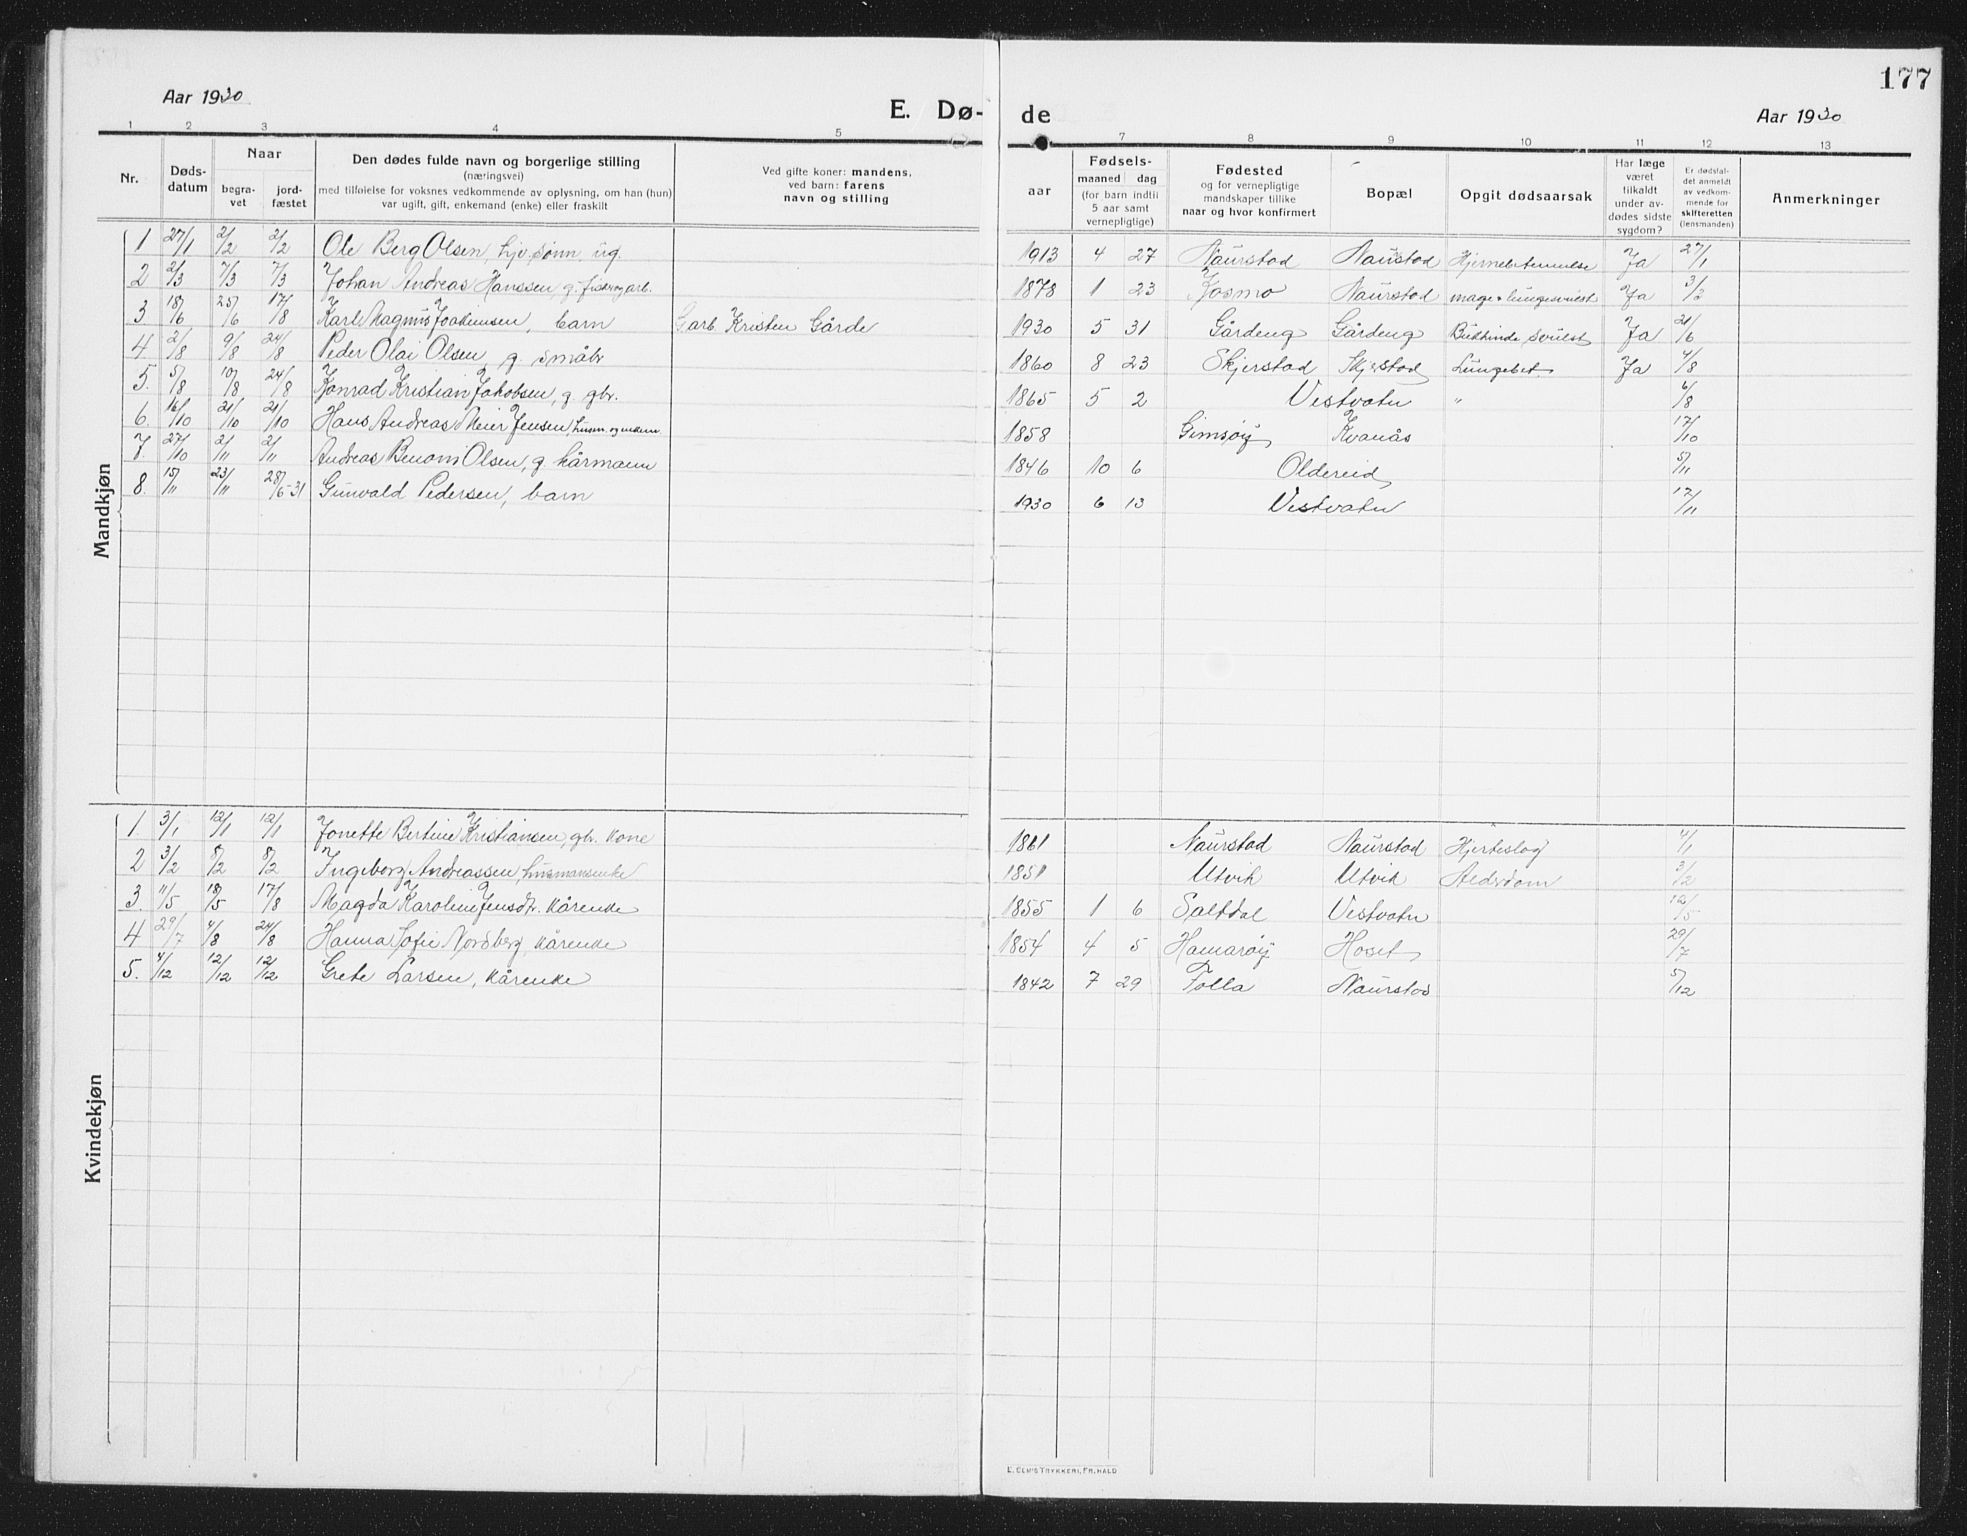 177
Aar 1930
E. Dø-
de
Aar 1930
1 2 3 4 5 7 8 9 10 11 12 13
Nr.
Døds-
datum
Naar
begra-
vet
jord-
fæstet
Den dødes fulde navn og borgerlige stilling
(næringsvei)
med tilføielse for voksnes vedkommende av oplysning, om han (hun)
var ugift, gift, enkemand (enke) eller fraskilt
Ved gifte koner: mandens,
ved barn: farens
navn og stilling
aar
Fødsels-
maaned dag
(for barn indtil
5 aar samt
vernepligtige)
Fødested
og for vernepligtige
mandskaper tillike
naar og hvor konfirmert
Bopæl
Opgit dødsaarsak
Har læge
været
tilkaldt
under av-
dødes sidste
sygdom?
Er dødsfal-
det anmeldt
av vedkom-
mende for
skifteretten
(lensmanden)
Anmerkninger
Mandkjøn
1 27/1 2/2 2/2 Ole Berg Olsen, hjv. sønn, ug. 1913 4 27 Naurstad Naurstad Hjernebetennelse Ja 27/1
2 2/3 7/3 7/3 Johan Andreas Hanssen, g. fisker og arb. 1878 1 23 Kosmo Naurstad mage- lungesvulst Ja 3/3
3 18/6 25/6 17/8 Karl Magnus Joakimsen, barn Garb. Kristen Gårde 1930 5 31 Gårdeng Gårdeng Bukhinde svulst Ja 21/6
4. 2/8 9/8 24/8 Peder Olai Olsen, g. småbr 1860 8 23 Skjerstad Skjerstad Lungebet. Ja 4/8
5. 5/8 10/8 24/8 Konrad Kristian Jakobsen, g. gbr. 1865 5 2 Vestvatn " 6/8
6. 16/10 21/10 21/10 Hans Andreas Meier Jensen, husm. og enkem. 1858 Gimsøy Kvanås 17/10
7. 27/10 2/11 2/11 Andreas Benoni Olsen, g. kårmann 1846 10 6 Oldereid 5/11
8. 15/11 23/11 28/6-31 Gunvald Pedersen, barn 1930 6 13 Vestvatn 17/11
Kvindekjøn
1. 3/1 12/1 12/1 Jonette Bertine Kristiansen, gbr. kone 1861 Naurstad Naurstad Hjerteslag 4/1
2 3/2 8/2 8/2 Ingeborg Andreassen, husmansenke 1851 Utvik Utvik Alderdom 3/2
3. 11/5 18/5 17/8 Magda Karoline Jensdtr. kårenke 1855 1 6 Saltdal Vestvatn 12/5
4 29/7 4/8 24/8 Hanna Sofie Nordberg, kårenke 1854 4 5 Hamarøy Hoset 29/7
5. 4/12 12/12 12/12 Grete Larsen, kårenke 1842 7 29 Folla Naurstad 5/12
E. SEM'S TRYKKERI, FR.HALD